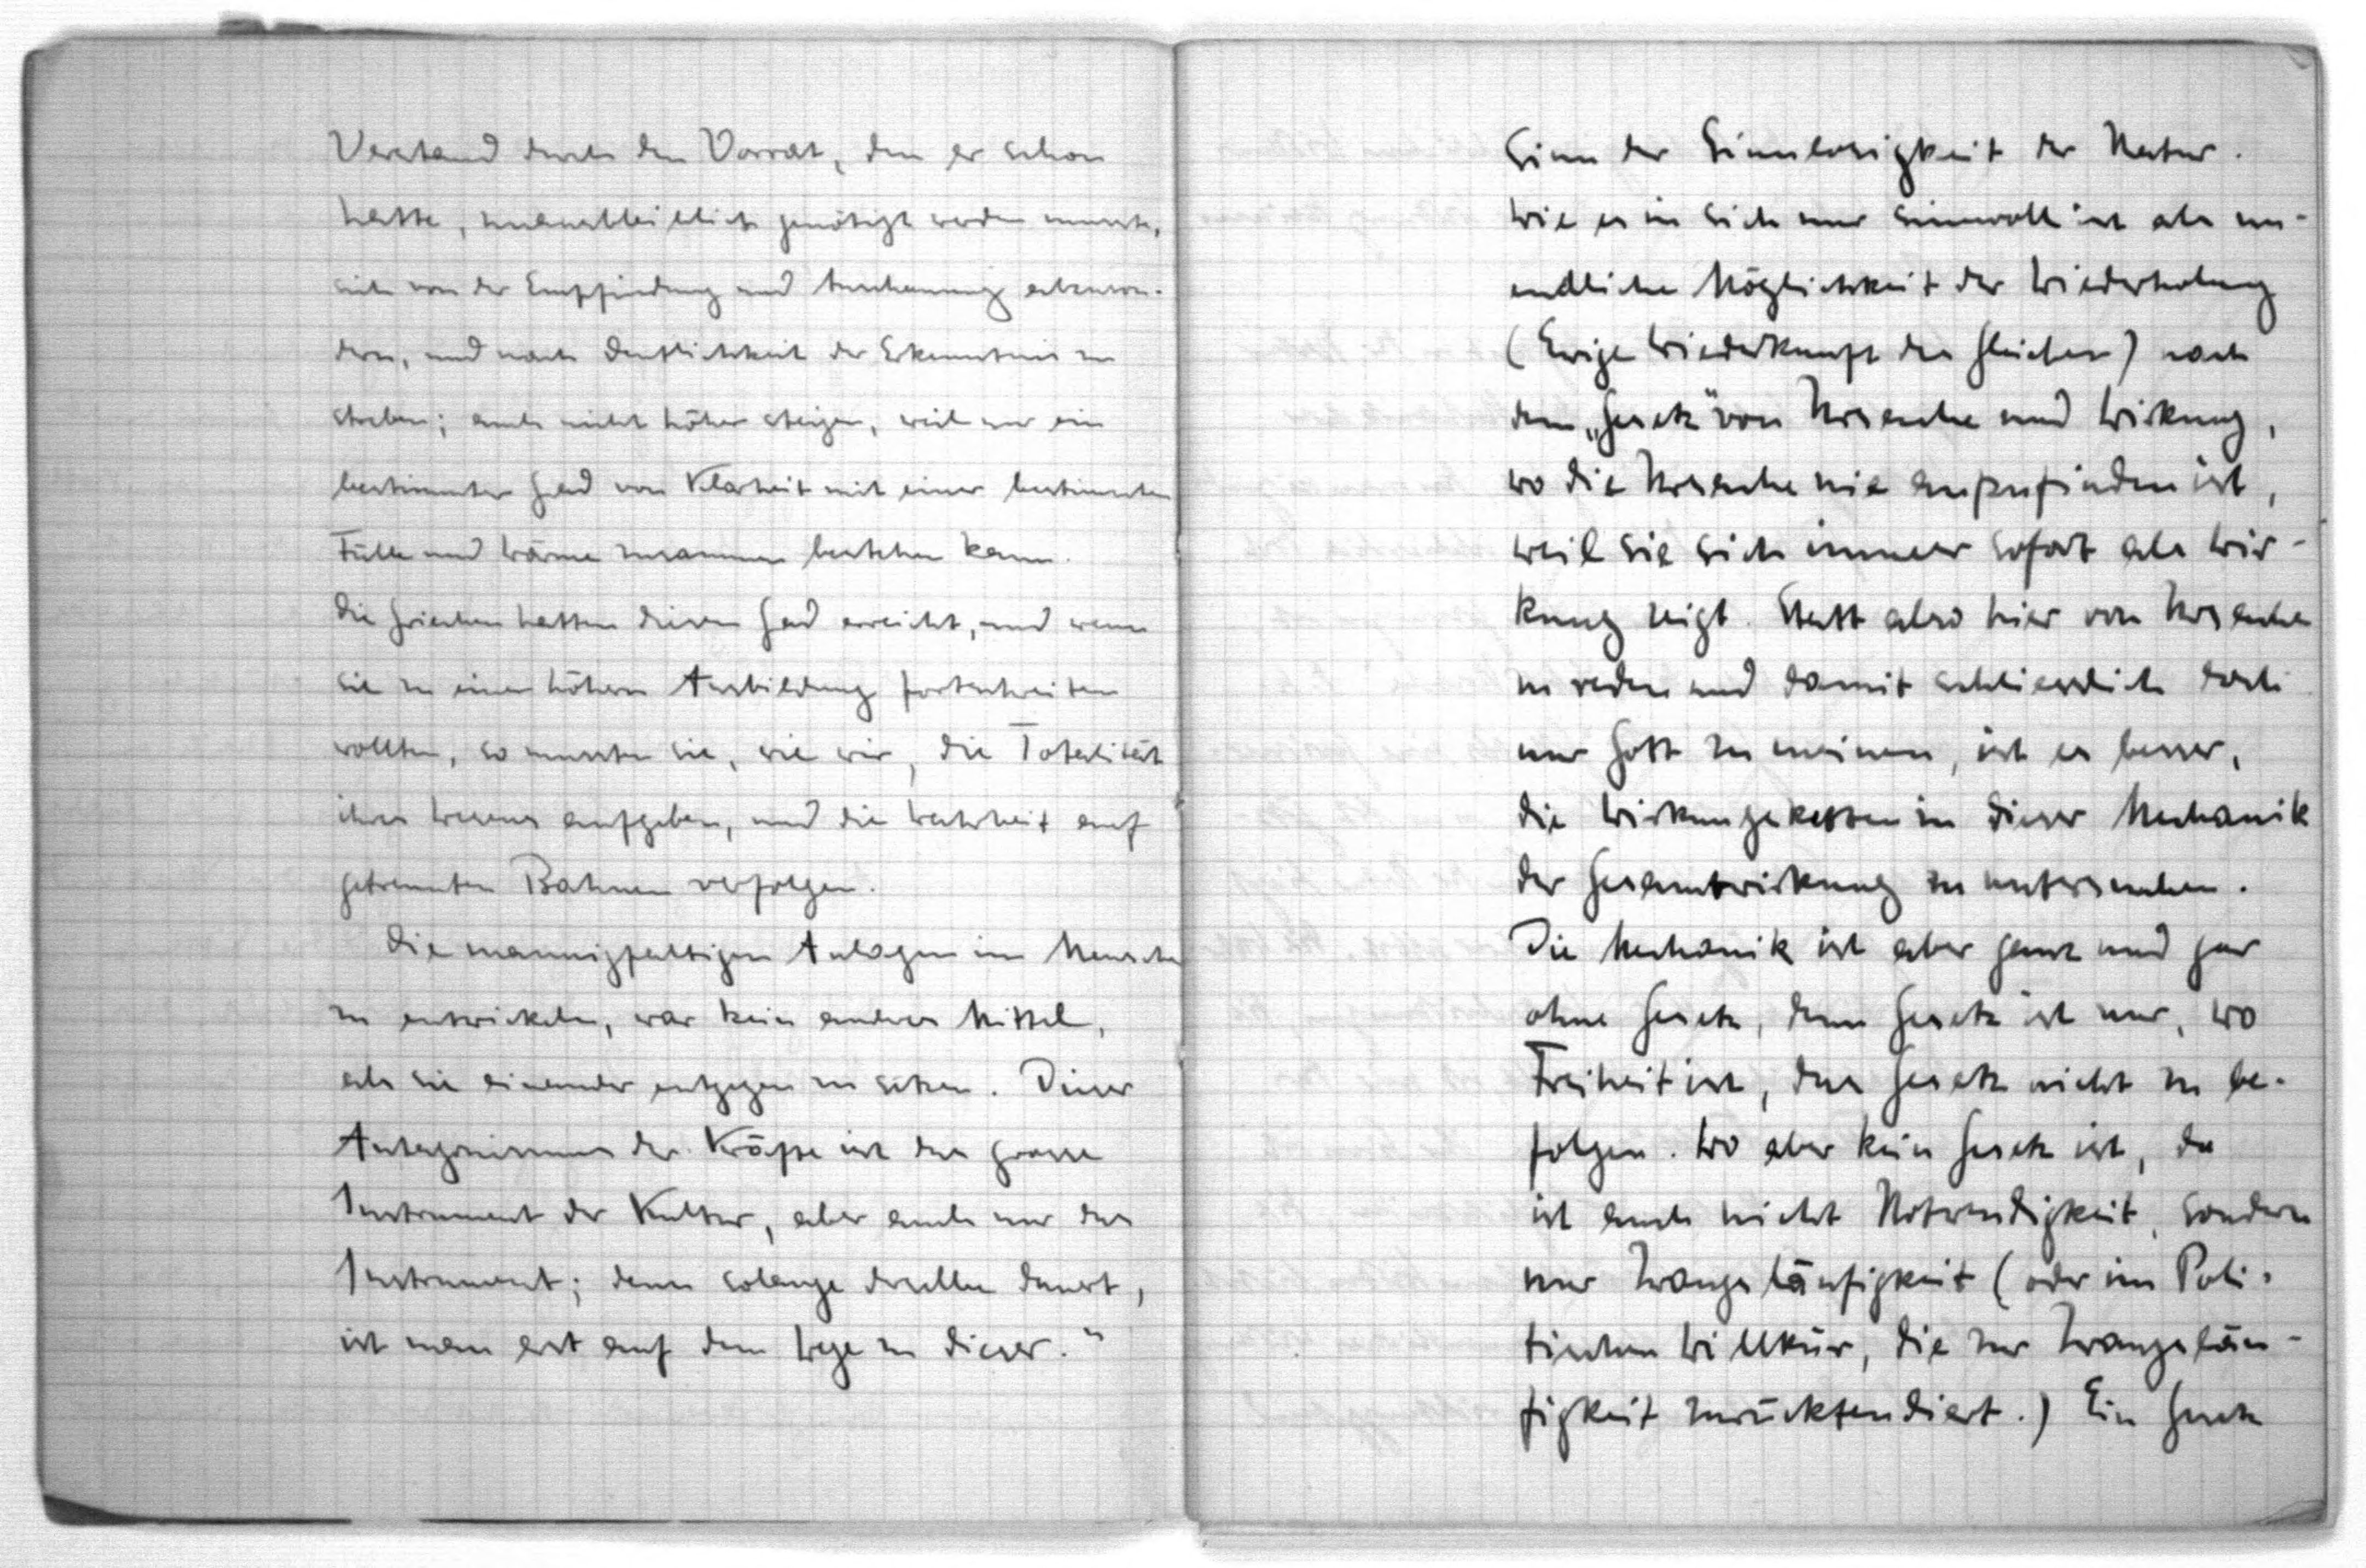 Verstand durch den Vorrat, den er schon
hatte, unausbleiblich genötigt werden musste,
sich von der Empfindung und Anschauung abzuson-
dern, und nach Deutlichkeit der Erkenntnis zu
streben; auch nicht höher steigen, weil nur ein
bestimmter Grad von Klarheit mit einer bestimmten
Fülle und Wärme zusammen bestehen kann.
Die Griechen hatten diesen Grad erreicht, und wenn
sie zu einer höhern Ausbildung fortschreiten
wollten, so mussten sie, wie wir, die Totalität
ihres Wesens aufgeben, und die Wahrheit auf
getrennten Bahnen verfolgen.
Die mannigfaltigen Anlagen im Menschen
zu entwickeln, war kein anderes Mittel,
als sie einander entgegen zu setzen. Dieser
Antagonismus der Kräfte ist das grosse
Instrument der Kultur, aber auch nur das
Instrument; denn solange derselbe dauert,
ist man erst auf dem Wege zu dieser."
Sinn der Sinnlosigkeit der Natur.
Wie es in sich nur sinnvoll ist als un-
endliche Möglichkeit der Wiederholung
(Ewige Wiederkunft des Gleichen) nach
dem „Gesetz" von Ursache und Wirkung,
wo die Ursache nie aufzufinden ist,
weil sie sich immer sofort als Wir-
kung zeigt. Statt also hier von Ursache
zu reden und damit schliesslich doch
nur Gott zu meinen, ist es besser,
die Wirkungsketten in dieser Mechanik
der Gesamtwirkung zu untersuchen.
Die Mechanik ist aber ganz und gar
ohne Gesetz, denn Gesetz ist nur, wo
Freiheit ist, das Gesetz nicht zu be-
folgen. Wo aber kein Gesetz ist, da
ist auch nicht Notwendigkeit, sondern
nur Zwangsläufigkeit (oder im Poli-
tischen Willkür, die zur Zwangsläu-
figkeit zurücktendiert.) Ein Gesetz